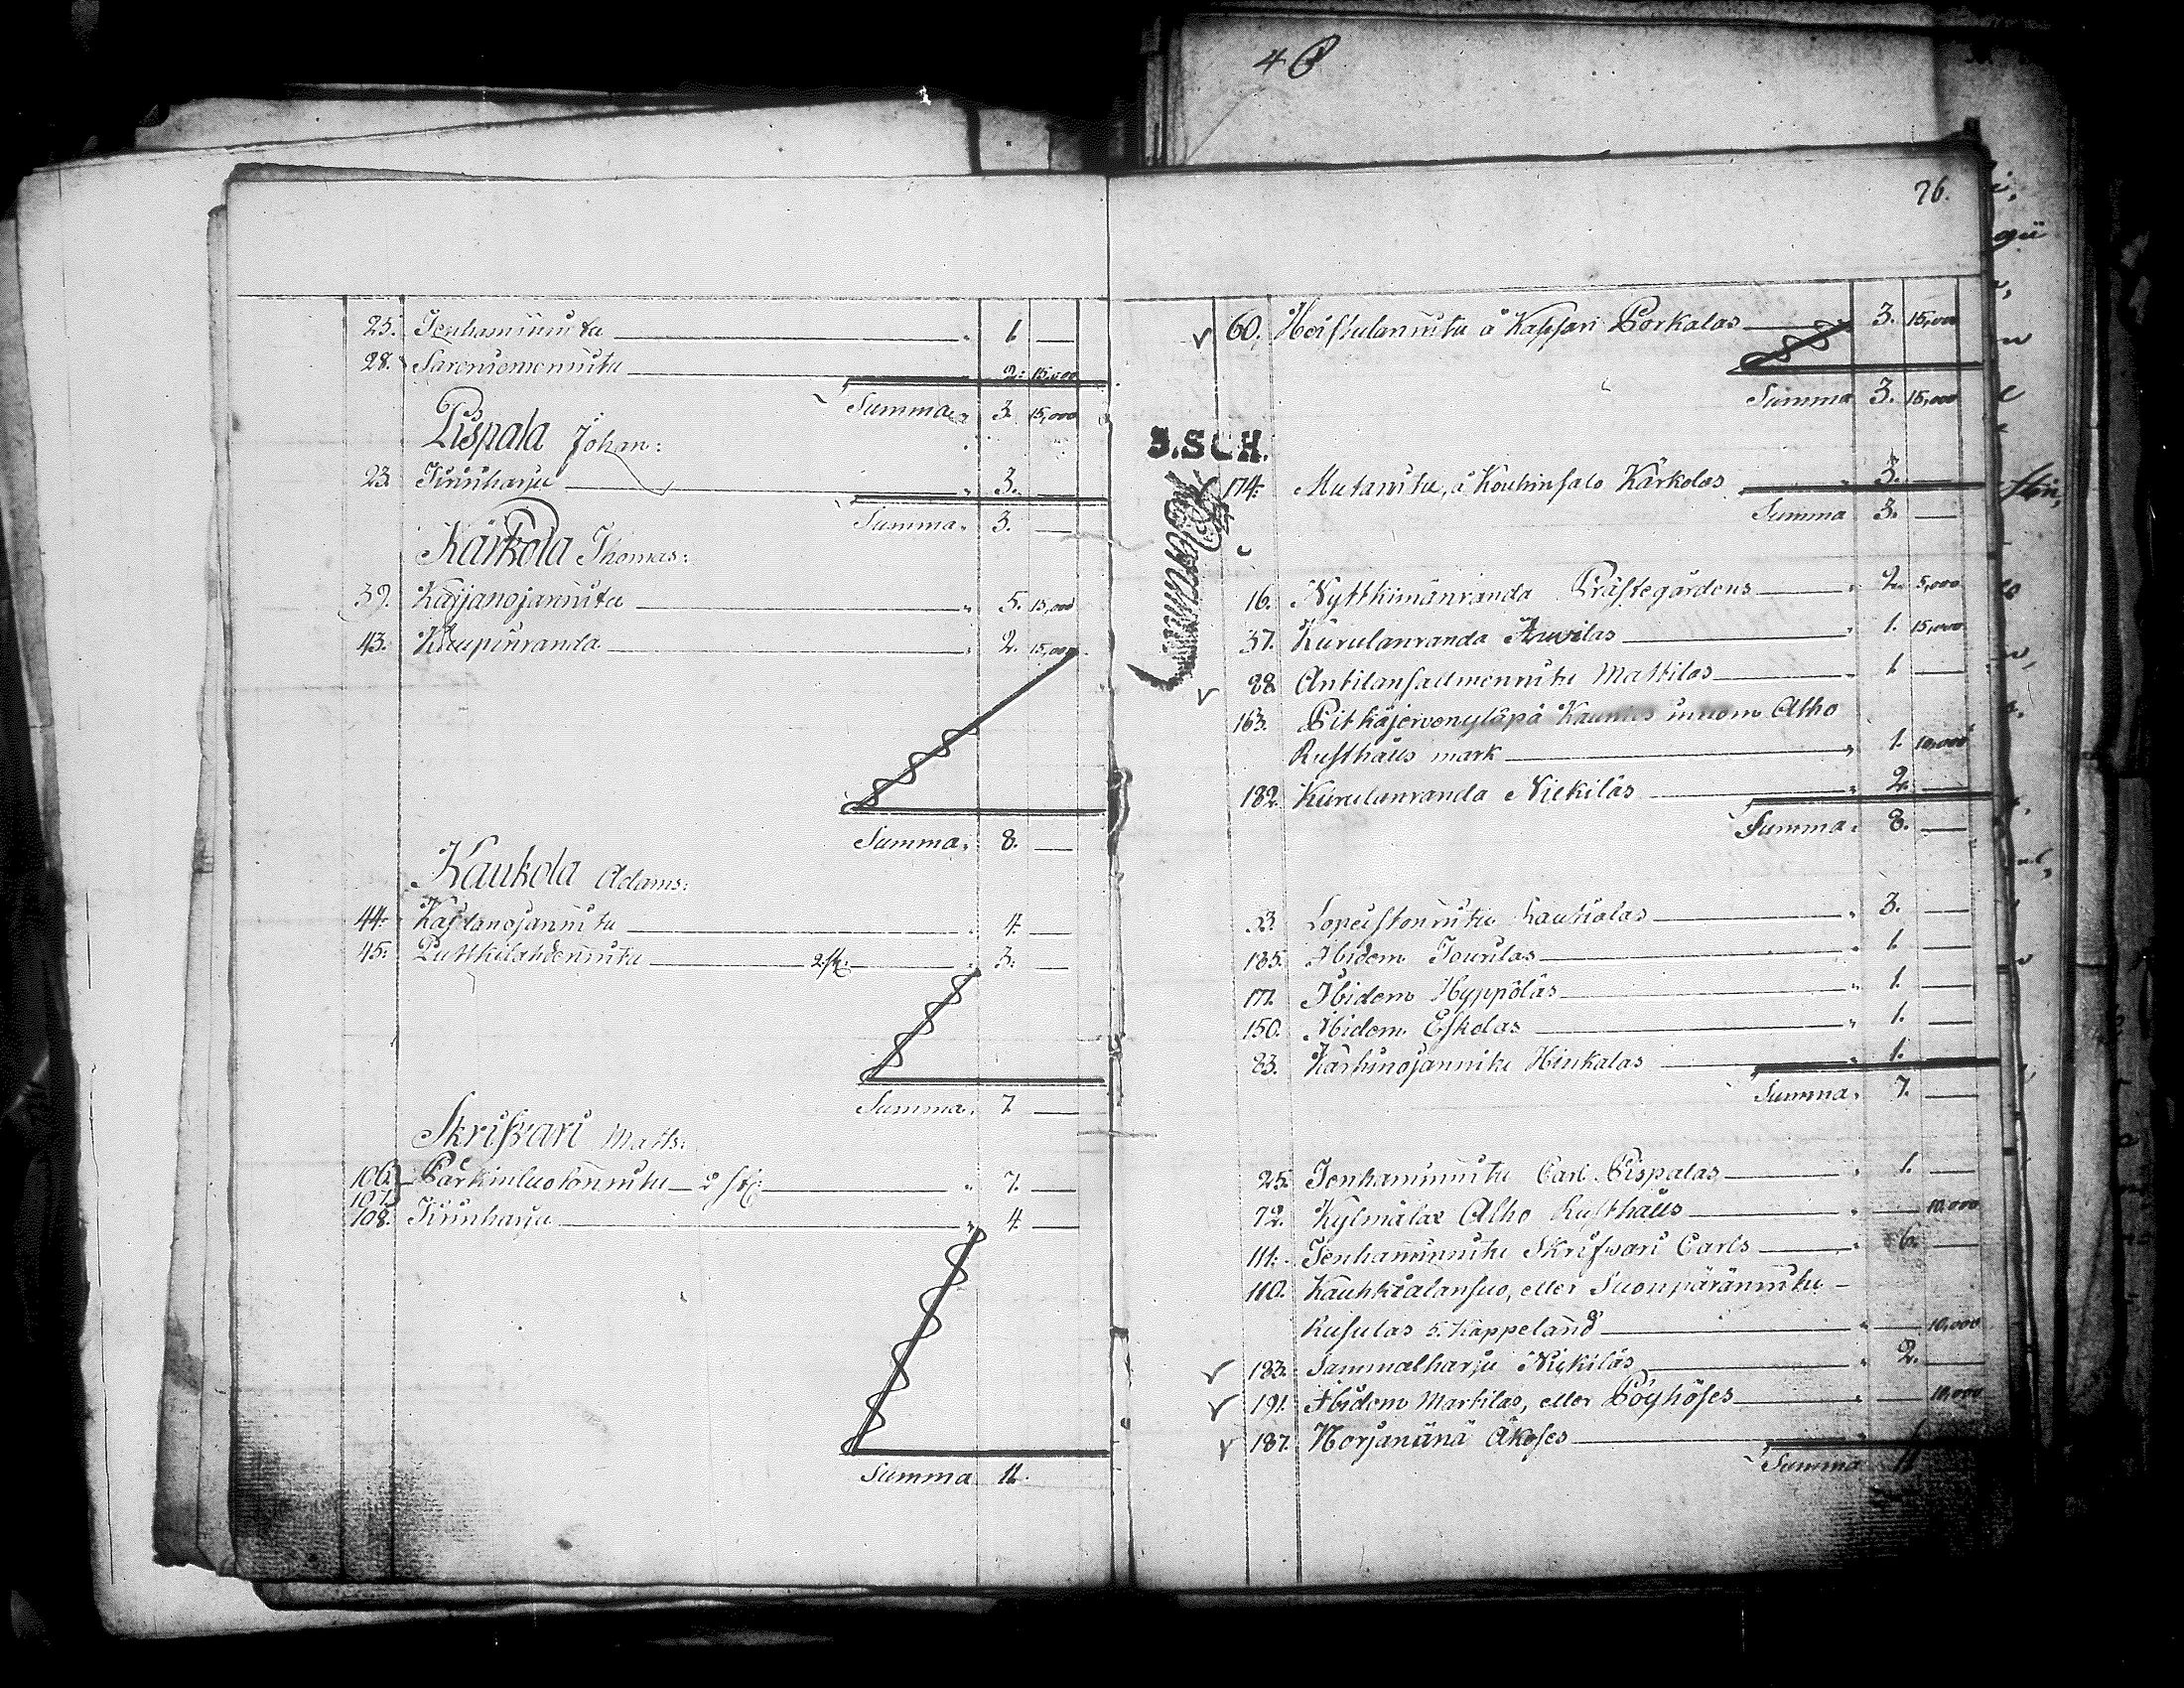 46
25. Tenhaminnitu 1 —
28. Sarensemennitu 2: 15,000
Summa 3. 15,000
Pispala Johan:
23. Tinnharju 3. —
Summa. 3. —
Kärkola Thomas:
39. Kaijanojannitu 5. 15,000
43. Kaupinranda 2. 15,000
Summa. 8. —
Kaukola Adams:
44. Kastanojannitu 4. —
45. Puttkilahdennitu 2. st: 3: —
Summa. 7 —
Skrifvari Matts:
106. Pärkinluotonnitu 2 st: 7. —
107.
108. Tinnharju 4. —
Summa 11.
76.
60. Heistulannitu å Kassari Porkalas 3. 15,000
Summa 3. 15,000
J.SCH.
174. Mutanitu, å Kouhinsalo Kärkolas 3. —
Summa 3. —
16. Nyttkimänranda Prästegårdens 2. 5,000
37. Kurulanranda Anvilas 1. 15,000
88. Antilansallmennitu Mattilas 1 —
163. Pitkäjervenyläpä Kaunios innom Alho
Rusthålls mark 1. 10,000
182. Kurulanranda Nickilas 2. —
Summa. 8. —
Lopeistonnitu Kaukolas 3. —
185. Ibidem Jourilas 1. —
177. Ibidem Hyppöläs 1. —
150. Ibidem Eskolas 1. —
83. Karhinojannitu Hinkalas 1. —
Summa. 7. —
25. Tenhaminnitu Carl Pispalas 1. —
72. Kylmälax Alho Rusthålls — 10,000
111. Tenhaminnitu Skrifvari Carls 6. —
110. Kauhkialansuo, eller Suonpärännitu —
Rusulas 5. Kappeland — 10,000
183. Sammalharju Nickilas 2. —
191. Ibidem Martilas, eller Pöyhöses — 10,000
187. Norjanänä Äkeses
Summa 11